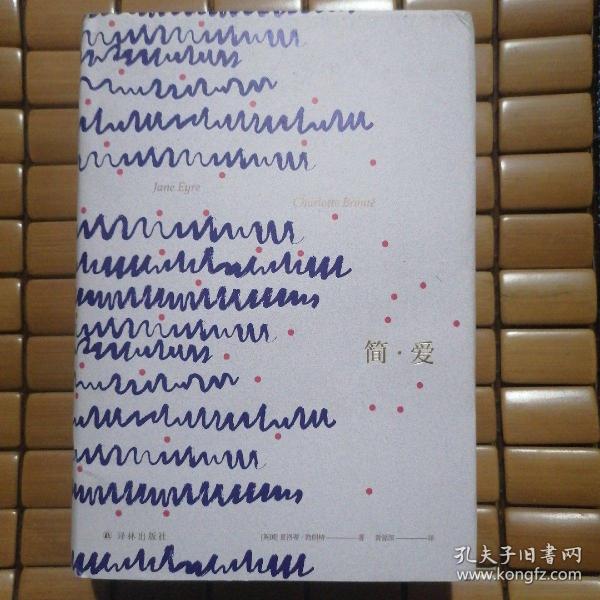 Jane Eyre
Charlotte Brontë
简·爱
译林出版社
[英国] 夏洛蒂·勃朗特 著 黄源深 译
孔夫子旧书网
www.kongfz.com